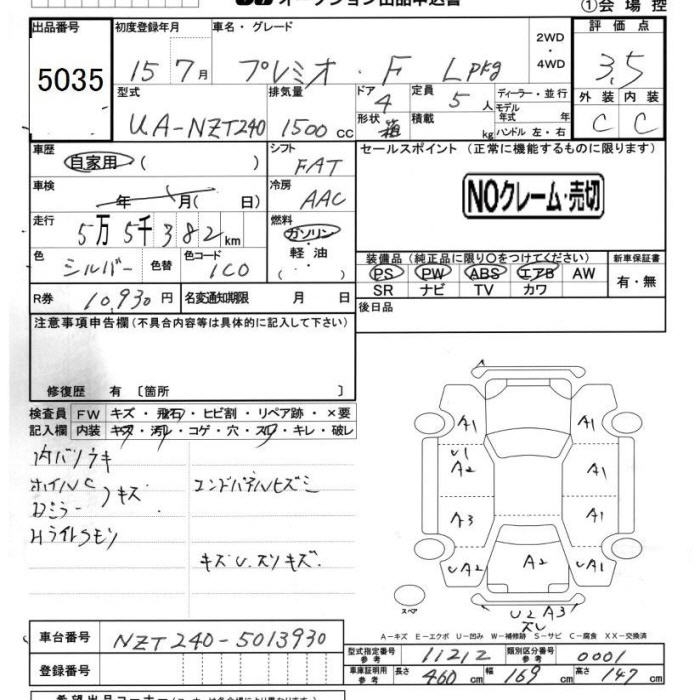 オークション出品申込書
①会場控
出品番号 初度登録年月 車名・グレード 2WD・4WD 評価点
5035 15 7月 プレミオ F Lpkg 3.5
型式 排気量 ドア 4 定員 5人 ディーラー・並行 外装 内装
UA-NZT240 1500cc 形状 箱 積載 kg モデル年式 年 ハンドル 左・右 C C
車歴 シフト セールスポイント(正常に機能するものに限ります)
自家用 ( ) FAT
車検 年 月( 日) 冷房 AAC NOクレーム・売切
走行 5万5千382km 燃料 ガソリン・軽油 ( ・ )
色 シルバー 色替 色コード 1C0
装備品(純正品に限り○をつけてください) 新車保証書
PS PW ABS エアB AW 有・無
SR ナビ TV カワ
R券 10,930円 名変通知期限 月 日 後日品
注意事項申告欄(不具合内容等は具体的に記入して下さい)
修復歴 有 〔箇所 〕
検査員 FW キズ・飛石・ヒビ割・リペア跡・×要
記入欄 内装 キズ・汚レ・コゲ・穴・スレ・キレ・破レ
内ハリウキ
ホイルC キズ エンドパネルヒズミ
ロミラー
Hライトスモリ
キズU.スリキズ.
A1 A1
U1
A2 A1
A3 A1
UA2 A2 UA1
スペア U2 A3
スレ
A-キズ E-エクボ U-凹み W-補修跡 S-サビ C-腐食 XX-交換済
車台番号 NZT240-5013930
型式指定番号 参考 11212 類別区分番号 参考 0001
登録番号 車庫証明用 参考 長さ 460cm 幅 169cm 高さ 147cm